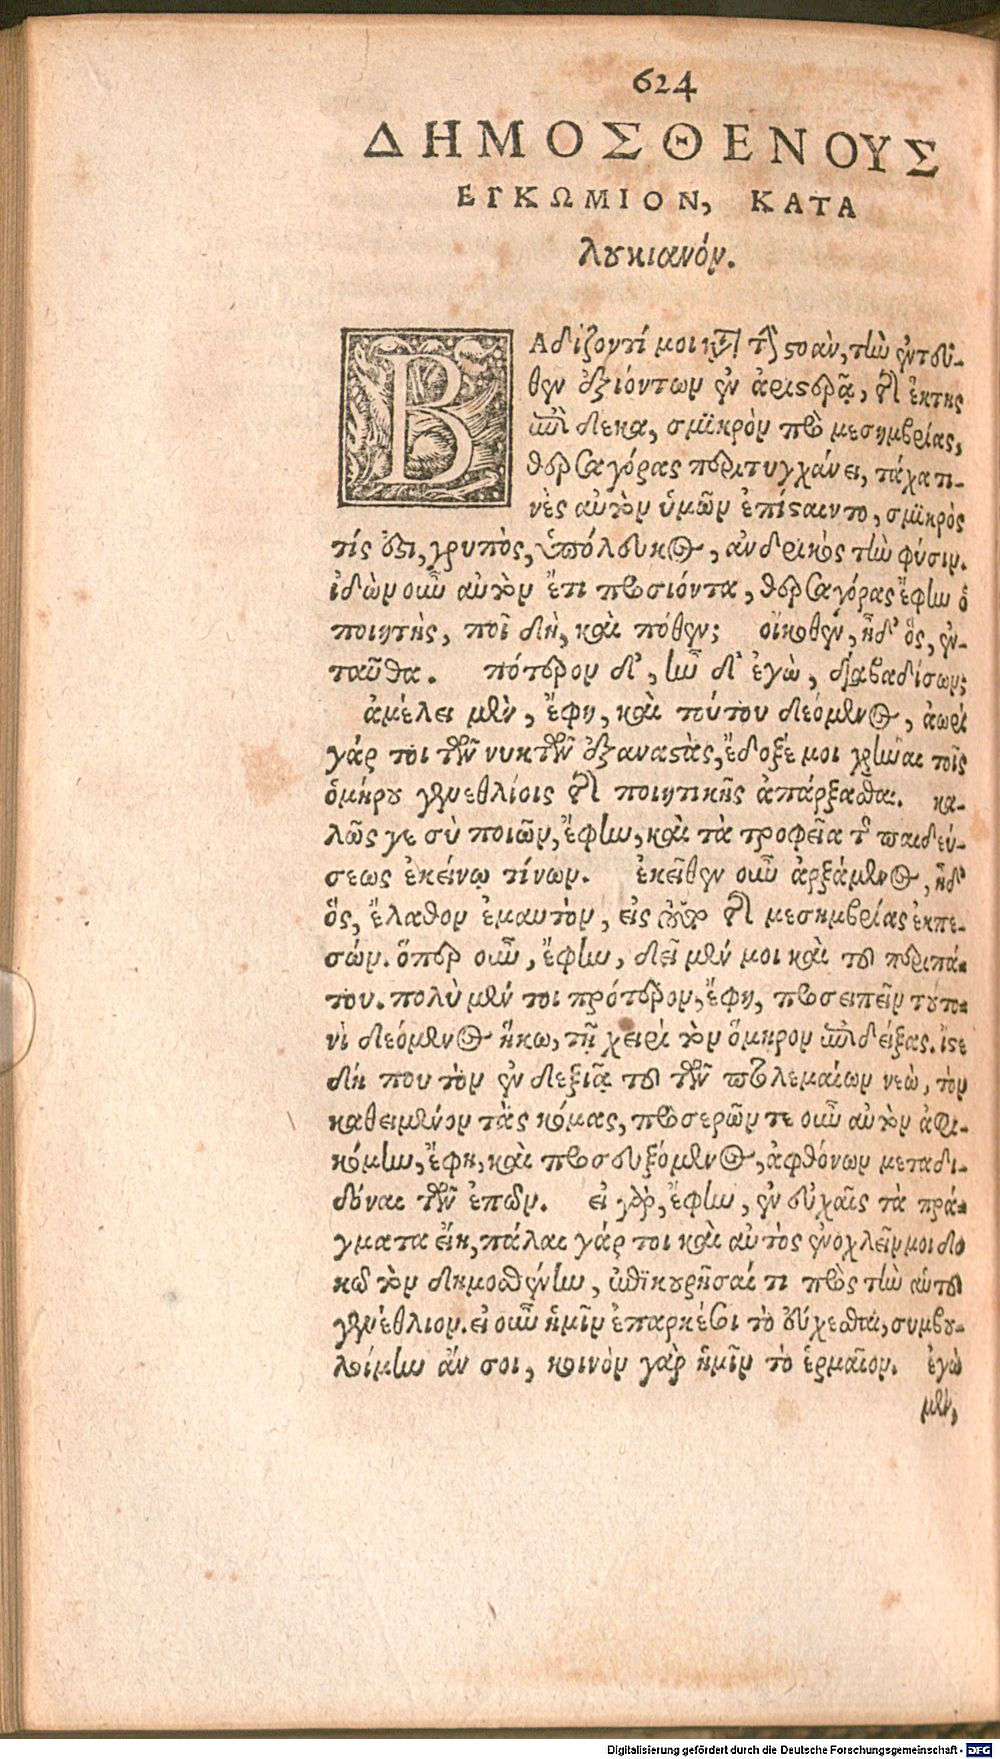 624
ΔΗΜΟΣΘΕΝΟΥΣ
ΕΓΚΩΜΙΟΝ, ΚΑΤΑ
λουκιανόν.
ΒΑδίζοντί μοι κατὰ τὴν στοὰν, τὴν ἐντεῦ-
θεν ἐξιόντων ἐν ἀριστερᾷ, τῆ ἕκτης
ἐπὶ δεκα, σμικρὸν πρὸ μεσημβρίας,
θερσαγόρας περιτυγχάνει, τάχα τι-
νὲς αὐτὸν ὑμῶν ἐπίσταιντο, σμικρὸς
τίς ἐστι, γρυπὸς, ὑπόλευκος, ἀνδρικὸς τὴν φύσιν.
ἰδὼν οὖν αὐτὸν ἔτι προσιόντα, θερσαγόρας ἔφην ὁ
ποιητὴς, ποῖ δὴ, καὶ πόθεν; οἴκοθεν, ἦδ' ὃς, ἐν-
ταῦθα. πότερον δ', ἦν δ' ἐγὼ, διαβαδίσων;
ἀμέλει μὲν, ἔφη, καὶ τούτου δεόμενος, ἀωρὶ
γάρ τοι τῶν νυκτῶν ἐξαναστὰς, ἔδοξέ μοι χρῆναι τοῖς
ὁμήρου γενεθλίοις τῆ ποιητικῆς ἀπάρξασθαι. κα-
λῶς γε σὺ ποιῶν, ἔφην, καὶ τὰ τροφεῖα τῆς παιδεύ-
σεως ἐκείνῳ τίνων. ἐκεῖθεν οὖν ἀρξάμενος, ἦδ'
ὃς, ἔλαθον ἐμαυτὸν, εἰς μέσον τῆ μεσημβρίας ἐκπε-
σών. ὅπερ οὖν, ἔφην, δεῖ μέν μοι καὶ τοῦ περιπά-
του. πολὺ μέν τοι πρότερον, ἔφη, προσειπεῖν τουτο-
νὶ δεόμενος ἥκω, τῇ χειρὶ τὸν ὅμηρον ἐπιδείξας. ἴστε
δή που τὸν ἐν δεξιᾷ τοῦ τῶν πτολεμαίων νεὼ, τὸν
καθειμένον τὰς κόμας, προσερῶν τε οὖν αὐτὸν ἀφι-
κόμην, ἔφη, καὶ προσευξόμενος, ἀφθόνων μεταδι-
δόναι τῶν ἐπῶν. εἰ γὰρ, ἔφην, ἐν εὐχαῖς τὰ πρά-
γματα εἴη, πάλαι γάρ τοι καὶ αὐτὸς ἐνοχλεῖν μοι δο
κῶ τὸν δημοσθένην, ἐπικουρῆσαί τι πρὸς τὴν αὑτοῦ
γενέθλιον. εἰ οὖν ἡμῖν ἐπαρκέσει τὸ εὔχεσθαι, συμβου-
λοίμην ἄν σοι, κοινὸν γὰρ ἡμῖν τὸ ἑρμαῖον. ἐγὼ
μὲν,
Digitalisierung gefördert durch die Deutsche Forschungsgemeinschaft - DFG